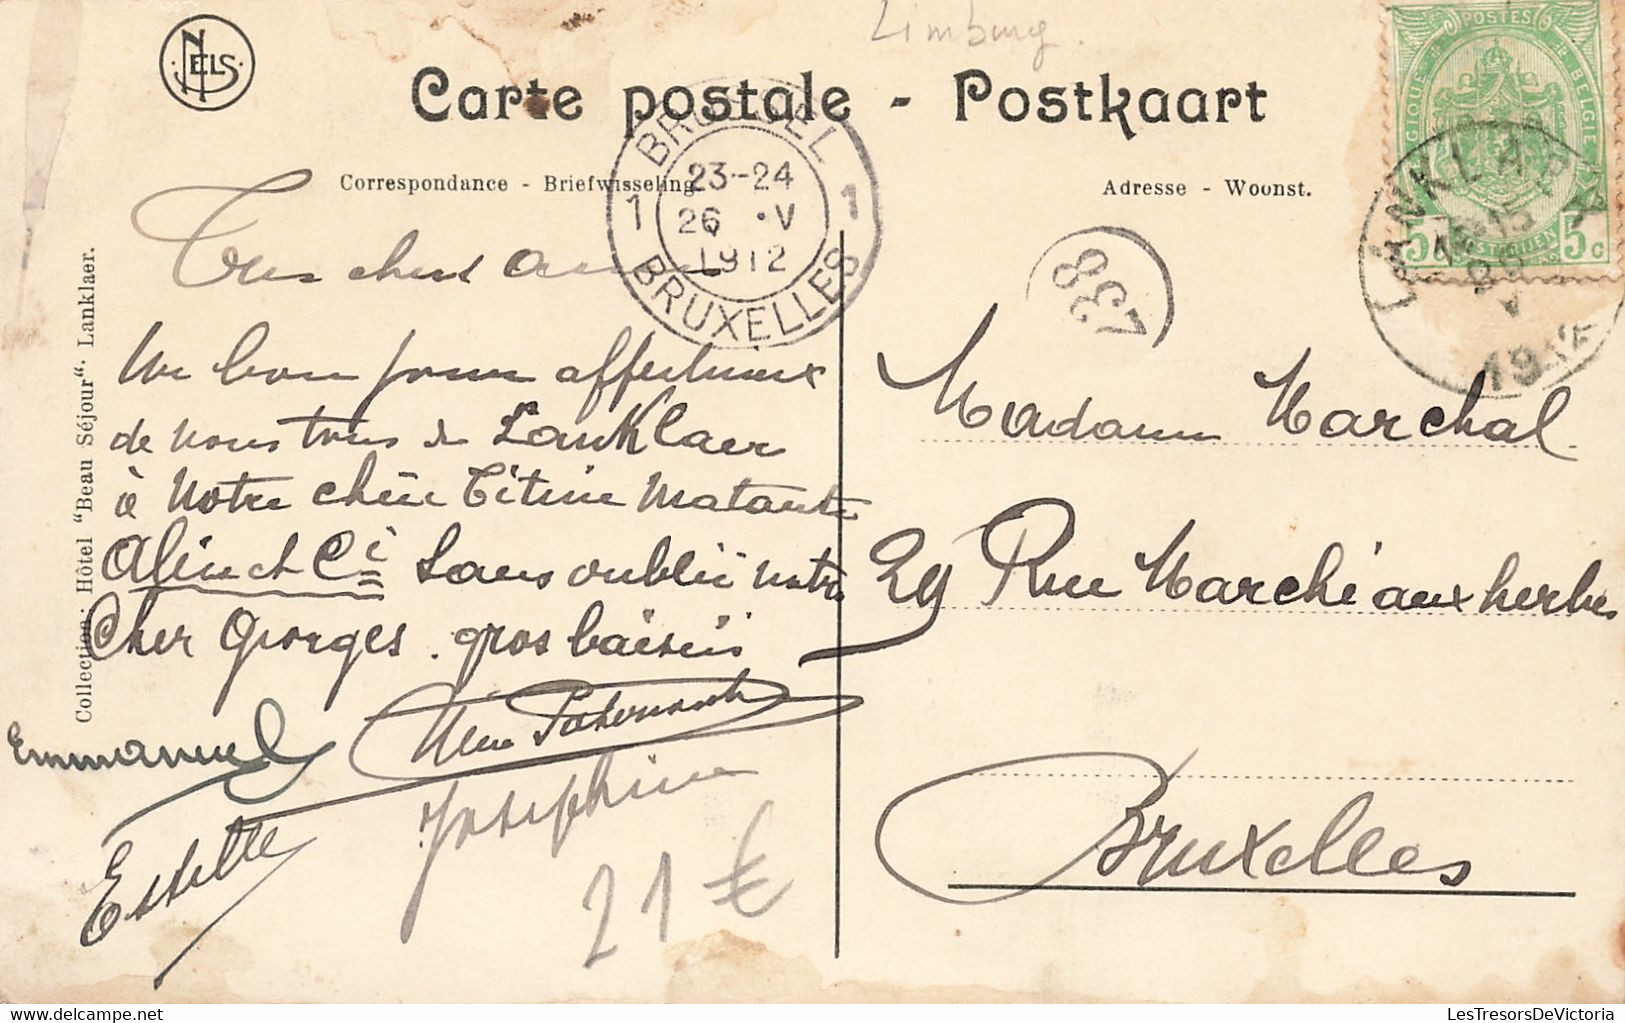 NELS
Limburg.
Carte postale - Postkaart
Correspondance - Briefwisseling
Adresse - Woonst.
POSTES
BELGIQUE
BELGIE
5c 5c
LANKLAER
1912
BRUSSEL
1 23-24 1
26 V
1912
BRUXELLES
238
Collection: Hôtel "Beau Séjour" Lanklaer.
Tres chers
Un bon jour affectueux
de nous tous de LanKlaer
à Notre chère Titine Matante
et Cie Sans oublier notre
Cher Georges. gros baisers
Emmanuel
Estelle
Joséphine
21 €
Madame Marchal
29 Rue Marché aux herbes
Bruxelles
LesTresorsDeVictoria